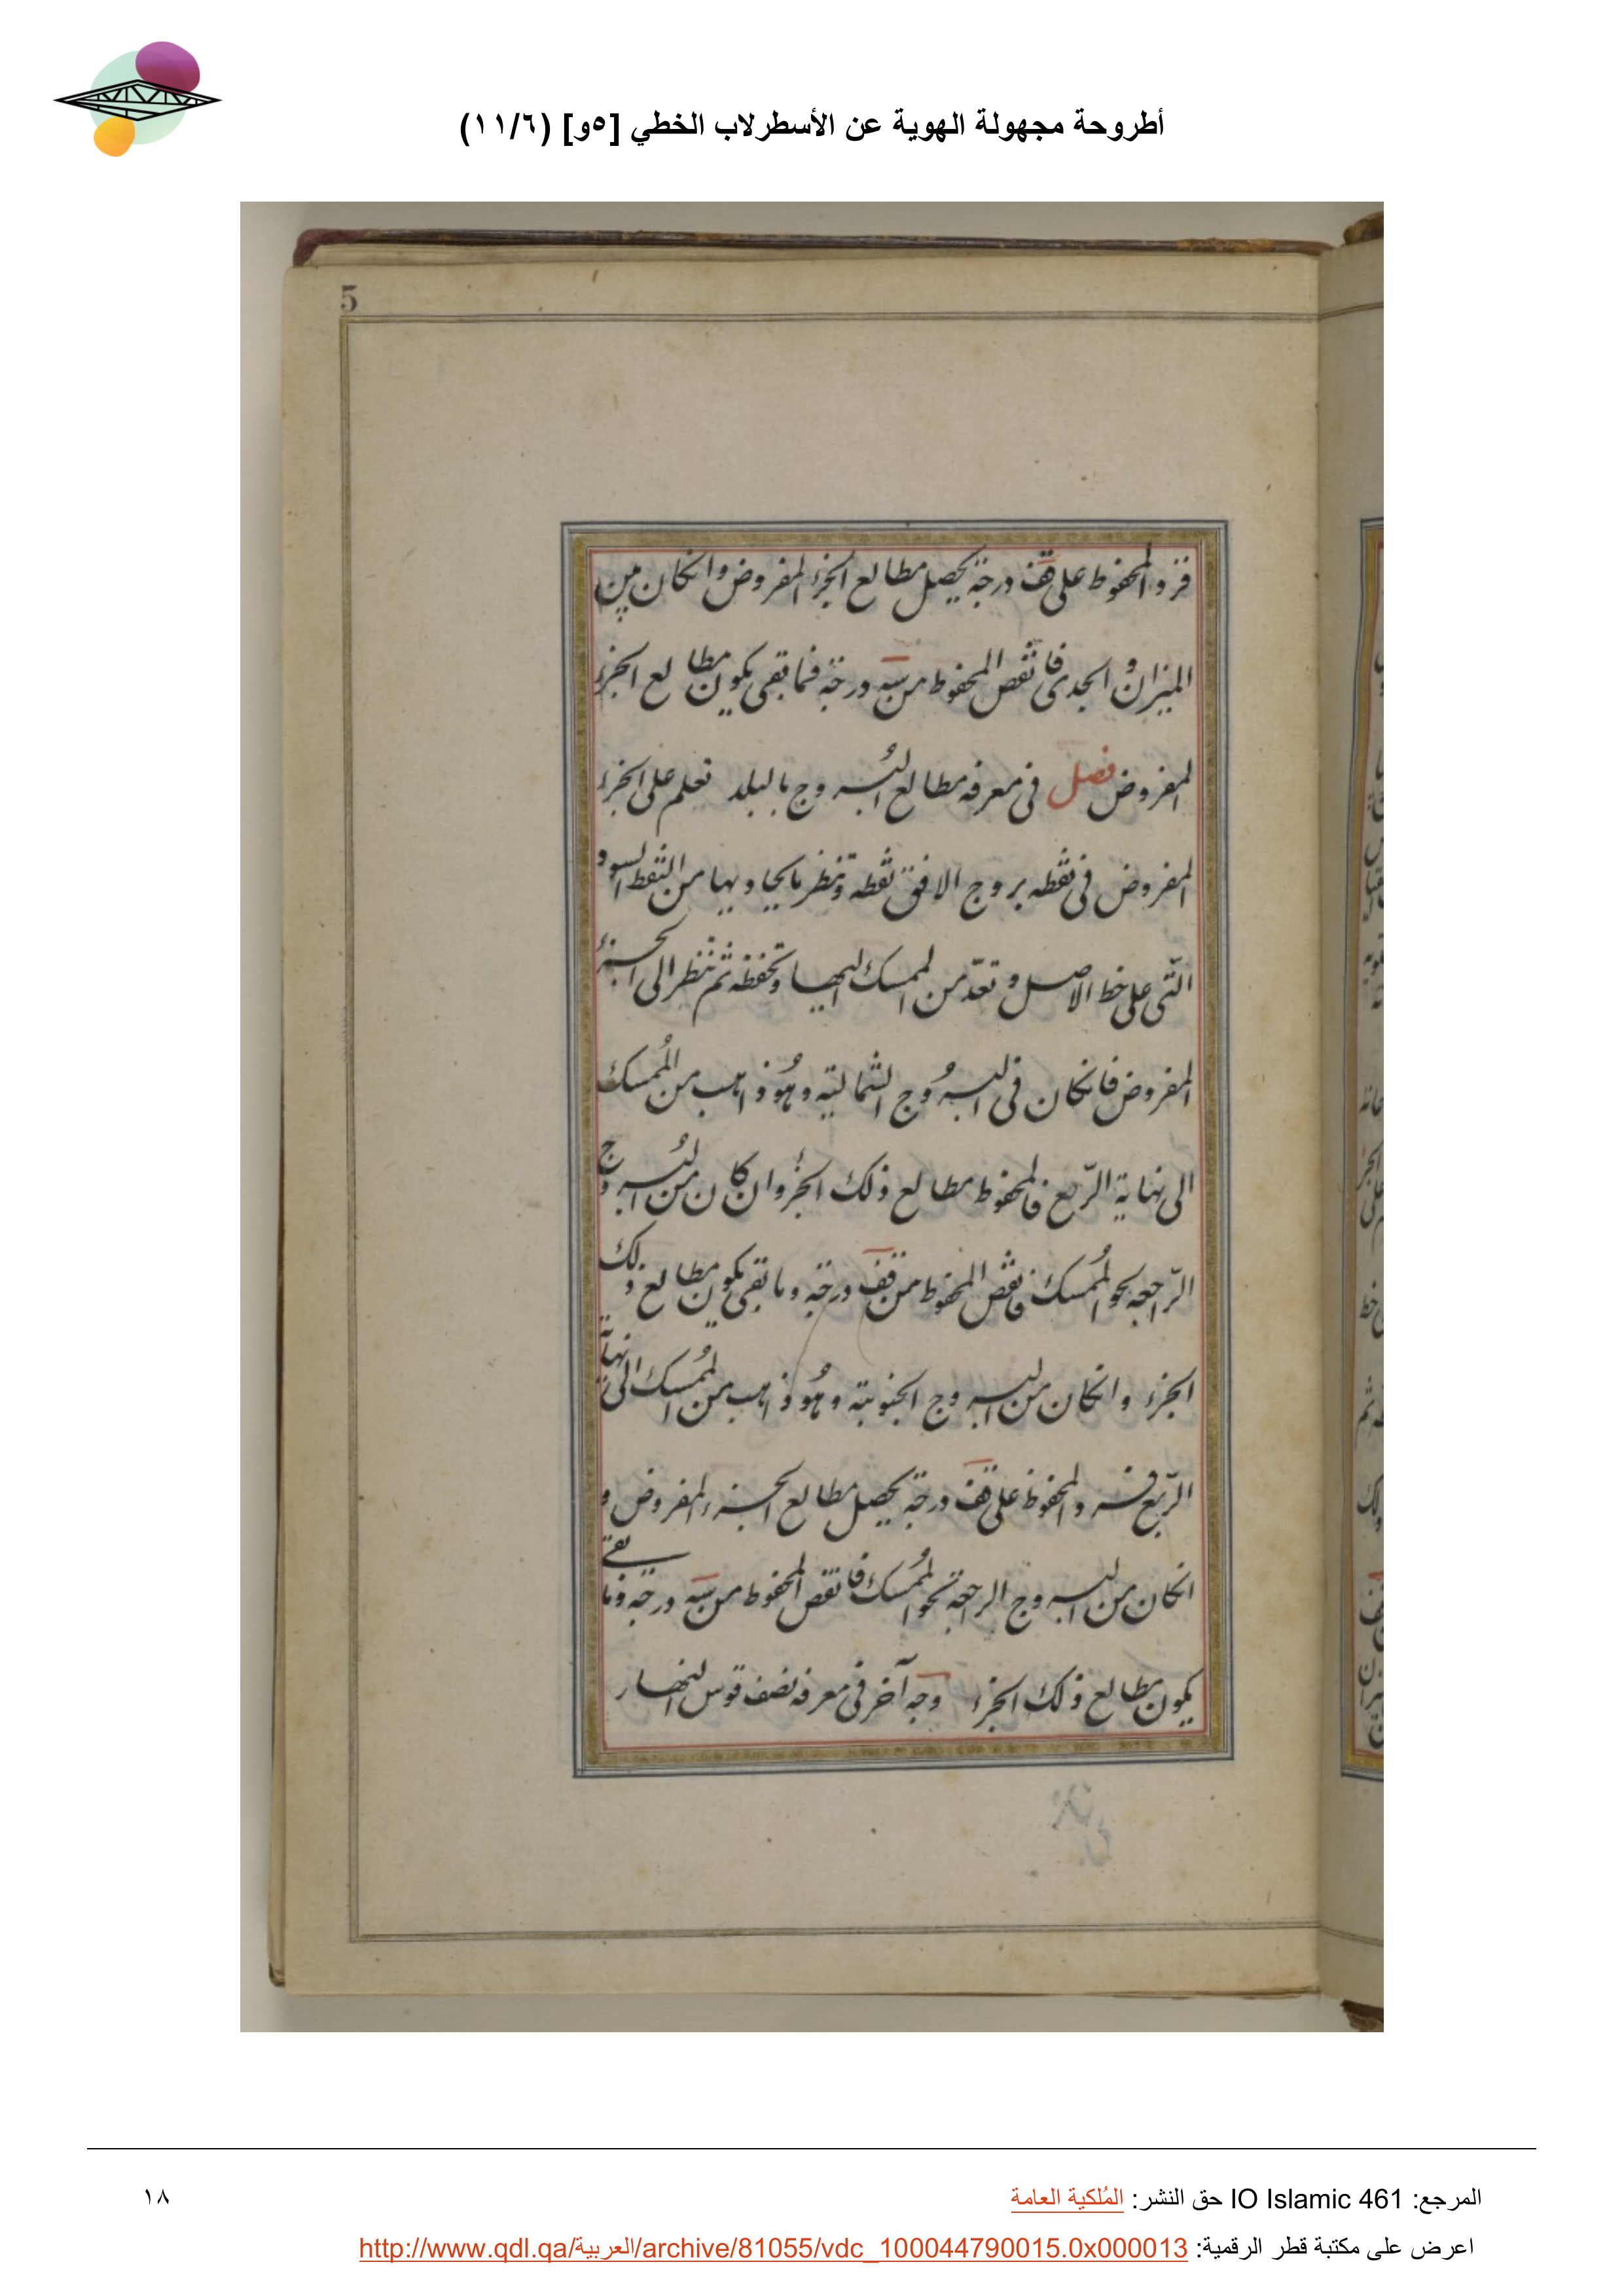 أطروحة مجهولة الهوية عن الأسطرلاب الخطي [٥و] (١١/٦)
5
فزد المحفوظ على قف درجة يحصل مطالع الجزء المفروض وانكان بين
الميزان والجدى فانقص المحفوظ من شس درجة فما بقى يكون مطالع الجزء
المفروض فصل فى معرفه مطالع البروج بالبلد تعلم على الجزء
المفروض فى نقطه بروج الافق نقطه وتنظر ما يحاديها من النقط السود
التى على خط الاصل وتعدّ من الممسك اليها وتحفظه ثم تنظر الى الجزء
المفروض فانكان فى البروج الشمالية وهو ذاهب من الممسك
الى نهاية الربع فالمحفوظ مطالع ذلك الجزء وان كان من البروج
الراجعه نحو الممسك فانقص المحفوظ من قف درجة وما بقى يكون مطالع ذلك
الجزء وانكان من البروج الجنوبية وهو ذاهب من الممسك الى نهاية
الربع فزد المحفوظ على قف درجة يحصل مطالع الجزء المفروض و
انكان من البروج الراجعة نحو الممسك فانقص المحفوظ من شس درجة وما بقى
يكون مطالع ذلك الجزء وجه آخر فى معرفه نصف قوس النهار
المرجع: IO Islamic 461 حق النشر: المُلكية العامة
١٨
اعرض على مكتبة قطر الرقمية: http://www.qdl.qa/العربية/archive/81055/vdc_100044790015.0x000013